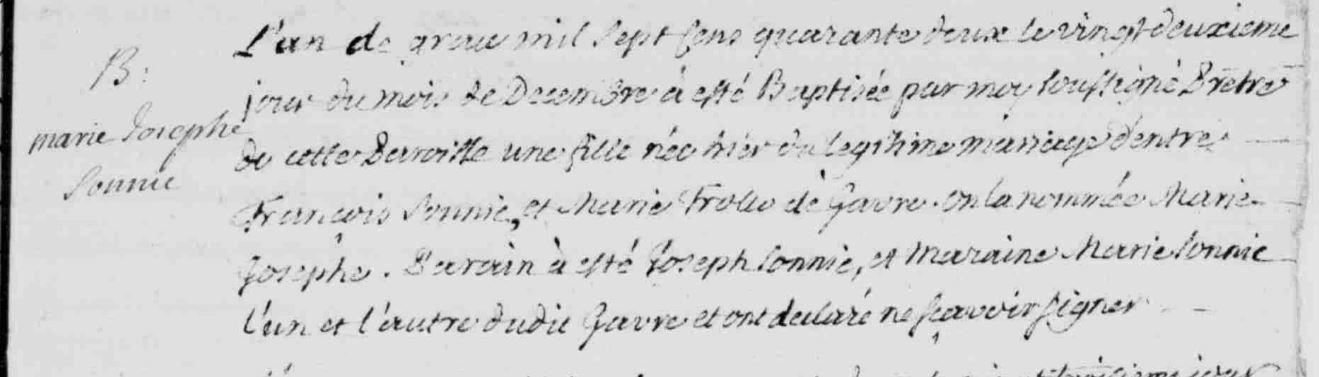 B:
marie Josephe
Sonnic
L'an de grace mil sept sens quarante deux le vingt deuxieme
jour du mois de Decembre à esté Baptisée par moy soussigné Prêtre
de cette Paroisse une fille née hier du legitime mariage d'entre
François Sonnic, et Marie Frollo de Gavre. on la nommée Marie
Josephe. Parain à esté Joseph Sonnic, et Maraine Marie Sonnic
l'un et l'autre dudit Gavre et ont declaré ne sçavoir signer